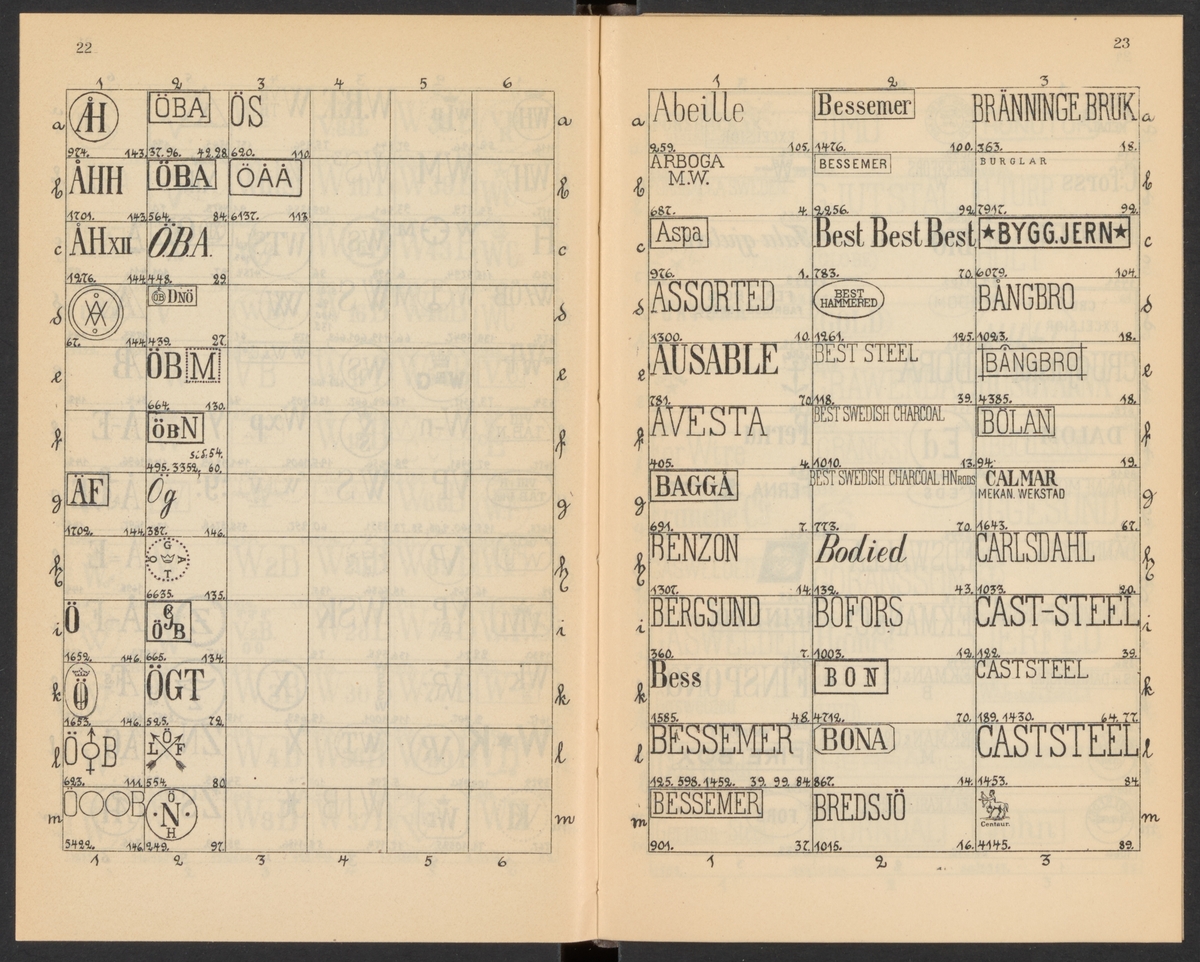 22
1 2 3 4 5 6
a ÅH ÖBA ÖS a
974. 143. 37. 96. 42.28. 620. 110.
b ÅHH ÖBA ÖÄÅ b
1701. 143. 564. 84. 6137. 113.
c ÅHXII Ö.B.A. c
1276. 144. 448. 29
d ÖB DNÖ d
67. 144. 439. 27.
e ÖB M e
664. 130.
f ÖBN f
s:s.54.
495. 3352. 60.
g ÄF Ög g
1702. 144. 387. 146.
h G O A T h
6635. 135.
i Ö ÖJB i
1652. 146. 665. 134.
k Ö ÖGT k
1653. 146. 595. 72.
l Ö B Ö L F l
623. 111. 554. 80.
m ÖOOOB Ö N H m
5422. 146. 249. 97.
1 2 3 4 5 6
23
1 2 3
a Abeille Bessemer BRÄNNINGE BRUK a
259. 105. 1476. 100. 363. 18.
b ARBOGA BESSEMER BURGLAR b
M.W.
687. 4. 2256. 92. 7917. 92.
c Aspa Best Best Best ★BYGG.JERN★ c
976. 1. 783. 70. 6079. 104.
d ASSORTED BEST HAMMERED BÅNGBRO d
1300. 10. 1261. 125. 1023. 18.
e AUSABLE BEST STEEL BÅNGBRO e
781. 70. 118. 39. 4385. 18.
f AVESTA BEST SWEDISH CHARCOAL BÖLAN f
405. 4. 1010. 13. 94. 19.
g BAGGÅ BEST SWEDISH CHARCOAL HN RODS CALMAR g
MEKAN. WEKSTAD
691. 7. 773. 70. 1643. 67.
h BENZON Bodied CARLSDAHL h
1307. 14. 132. 43. 1033. 20.
i BERGSUND BOFORS CAST-STEEL i
360. 7. 1003. 12. 122. 39.
k Bess BON CASTSTEEL k
1585. 48. 4712. 70. 189. 1430. 64. 77.
l BESSEMER BONA CASTSTEEL l
125. 598. 1452. 39. 99. 84. 867. 14. 1453. 84.
m BESSEMER BREDSJÖ Centaur. m
901. 37. 1015. 16. 4145. 89.
1 2 3